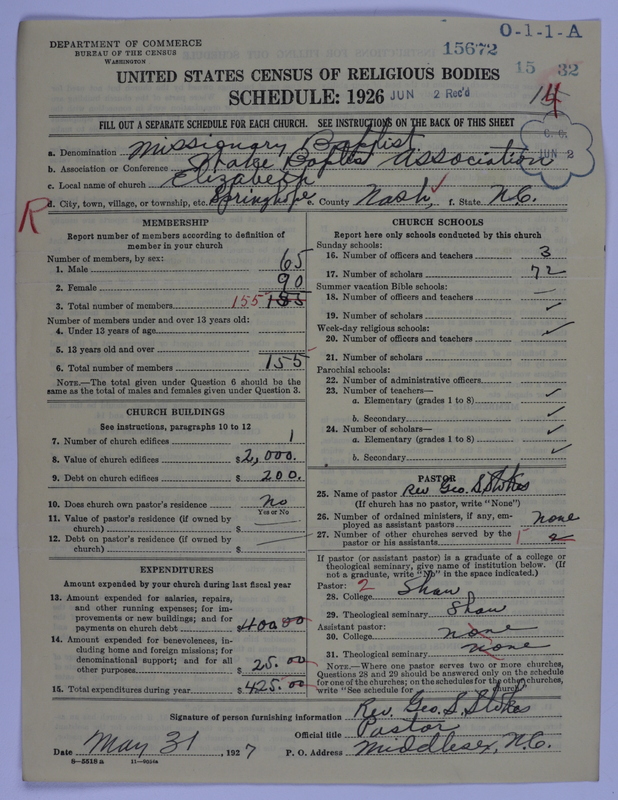 O-1-1-A
DEPARTMENT OF COMMERCE
BUREAU OF THE CENSUS
WASHINGTON
15672
15 32
UNITED STATES CENSUS OF RELIGIOUS BODIES
SCHEDULE: 1926 JUN 2 Rec'd
FILL OUT A SEPARATE SCHEDULE FOR EACH CHURCH. SEE INSTRUCTIONS ON THE BACK OF THIS SHEET
a. Denomination Missionary Baptist
b. Association or Conference Baptis Association
c. Local name of church Elizabeth
d. City, town, village, or township, etc. Springhope e. County Nash, f. State N.C.
JUN 2
R
MEMBERSHIP
Report number of members according to definition of
member in your church
Number of members, by sex:
1. Male 65
2. Female 90
3. Total number of members 155 185
Number of members under and over 13 years old:
4. Under 13 years of age
5. 13 years old and over
6. Total number of members 155
NOTE.—The total given under Question 6 should be the
same as the total of males and females given under Question 3.
CHURCH BUILDINGS
See instructions, paragraphs 10 to 12
7. Number of church edifices 1
8. Value of church edifices $2,000.
9. Debt on church edifices $ 200.
10. Does church own pastor's residence No
Yes or No
11. Value of pastor's residence (if owned by
church) $
12. Debt on pastor's residence (if owned by
church) $
EXPENDITURES
Amount expended by your church during last fiscal year
13. Amount expended for salaries, repairs,
and other running expenses; for im-
provements or new buildings; and for
payments on church debt 400 00
14. Amount expended for benevolences, in-
cluding home and foreign missions; for
denominational support; and for all
other purposes $ 25.00
15. Total expenditures during year $425.00
CHURCH SCHOOLS
Report here only schools conducted by this church
Sunday schools:
16. Number of officers and teachers 3
17. Number of scholars 72
Summer vacation Bible schools:
18. Number of officers and teachers
19. Number of scholars
Week-day religious schools:
20. Number of officers and teachers
21. Number of scholars
Parochial schools:
22. Number of administrative officers
23. Number of teachers—
a. Elementary (grades 1 to 8)
b. Secondary
24. Number of scholars—
a. Elementary (grades 1 to 8)
b. Secondary
PASTOR
25. Name of pastor Rev Geo. S. Stokes
(If church has no pastor, write "None")
26. Number of ordained ministers, if any, em-
ployed as assistant pastors none
27. Number of other churches served by the
pastor or his assistants 1 2
If pastor (or assistant pastor) is a graduate of a college or
theological seminary, give name of institution below. (If
not a graduate, write "No" in the space indicated.)
Pastor: 2
28. College Shaw
29. Theological seminary Shaw
Assistant pastor:
30. College none
31. Theological seminary none
NOTE.—Where one pastor serves two or more churches,
Questions 28 and 29 should be answered only on the schedule
for one of the churches; on the schedules for the other churches,
write "See schedule for church"
Signature of person furnishing information Rev. Geo. S. Stokes
Official title Pastor
Date May 31, 1927 P. O. Address Middlesex, N.C.
8—5518 a